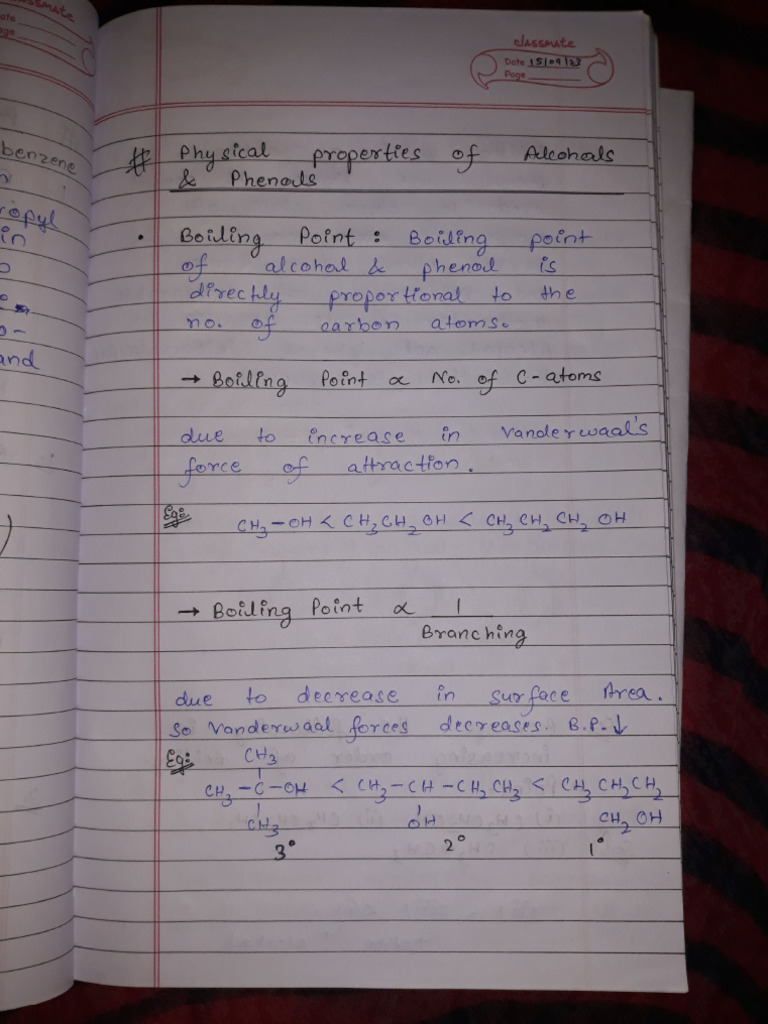 classmate
Date 15/09/23
Page
benzene
ropyl
in
and
# Physical properties of Alcohols
& Phenols
• Boiling Point : Boiling point
of alcohol & phenol is
directly proportional to the
no. of carbon atoms.
→ Boiling Point ∝ No. of C-atoms
due to increase in Vanderwaal's
force of attraction.
Eg:
CH₃-OH < CH₃CH₂OH < CH₃CH₂CH₂OH
→ Boiling Point ∝ 1
Branching
due to decrease in surface Area.
so Vanderwaal forces decreases. B.P.↓
Eg:
CH₃
CH₃-C-OH < CH₃-CH-CH₂CH₃ < CH₃CH₂CH₂
CH₃ OH CH₂OH
3° 2° 1°